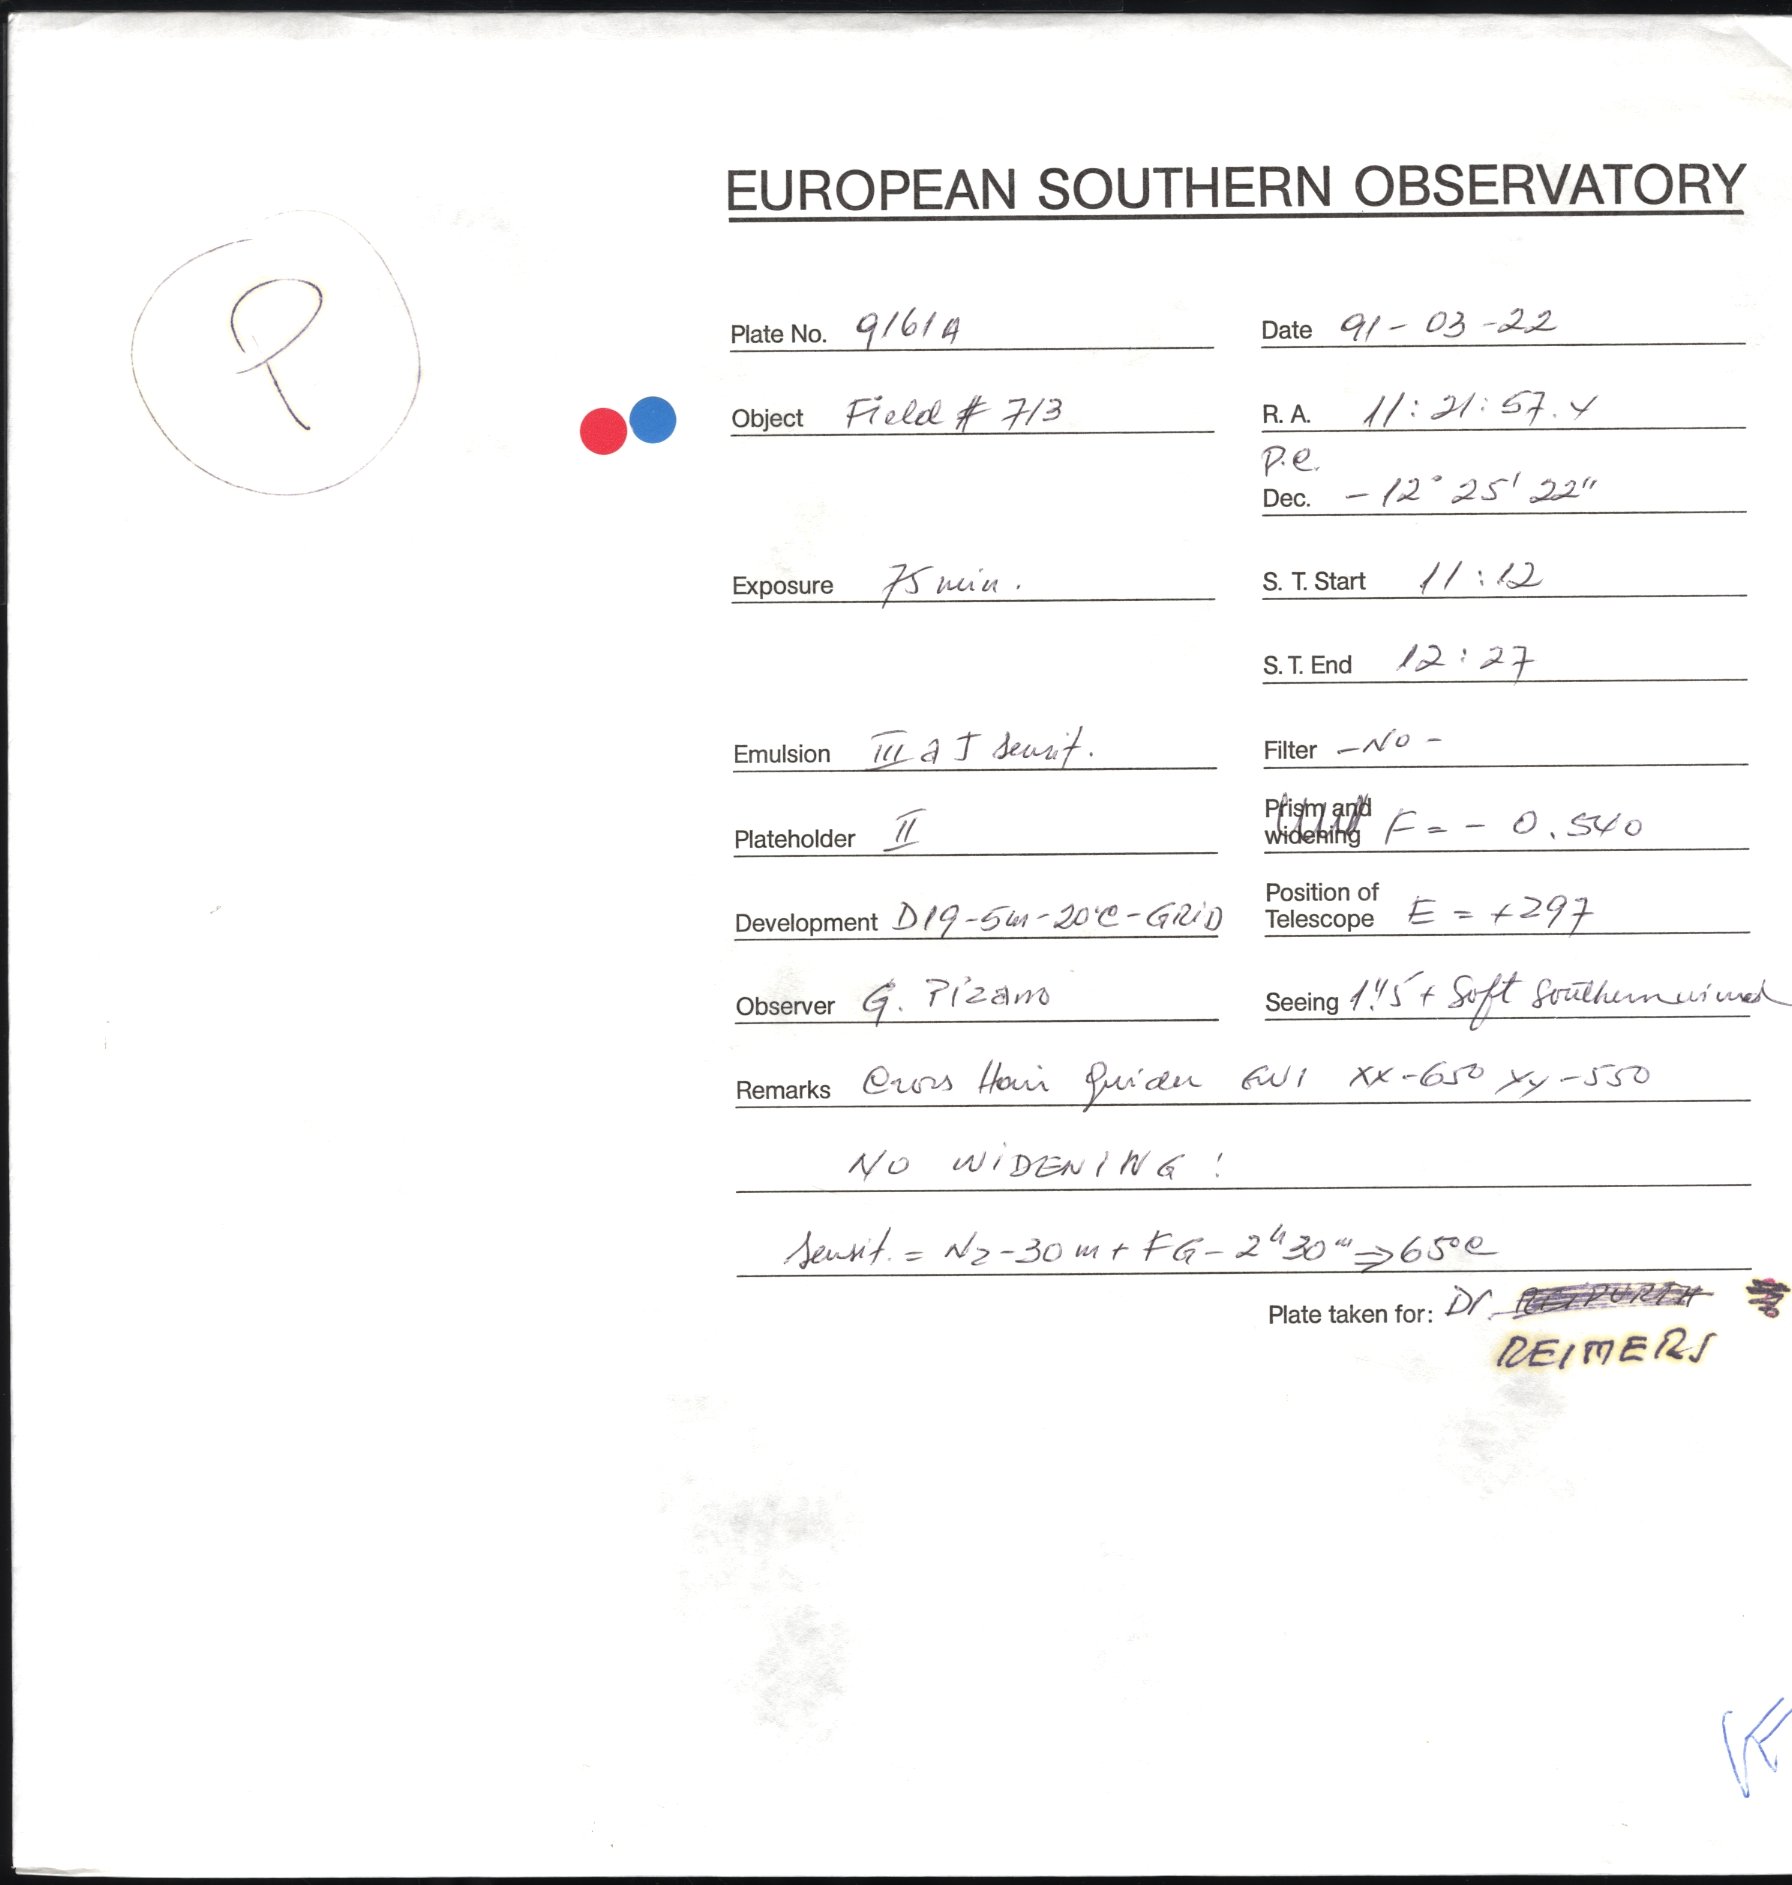 EUROPEAN SOUTHERN OBSERVATORY
P
Plate No. 9161A
Date 91-03-22
Object Field # 713
R. A. 11:21:57.4
p.e.
Dec. -12° 25' 22"
Exposure 75 min.
S. T. Start 11:12
S. T. End 12:27
Emulsion III a J sensit.
Filter -No-
Plateholder II
Prism and
widening F = - 0.540
Development D19-5m-20°C-GRiD
Position of
Telescope E = +297
Observer G. Pizarro
Seeing 1"5 + Soft Southern wind
Remarks Cross Hair guider GW1 xx-650 xy-550
NO WiDENING!
Sensit. = N2-30m + FG-2h30m ⇒ 65°C
Plate taken for: Dr.
REIMERS